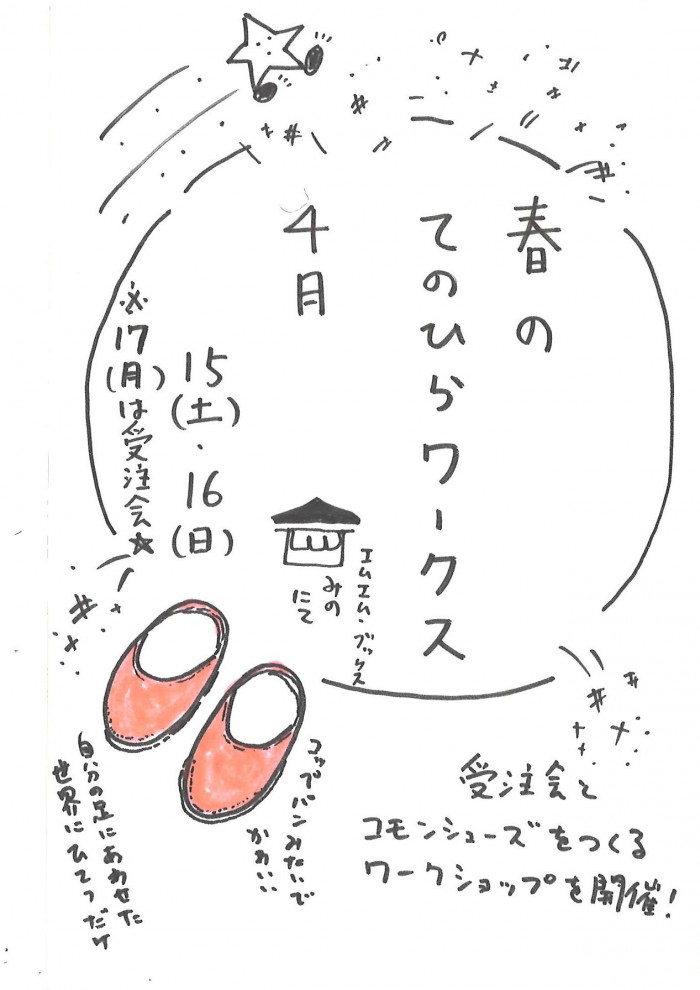 春の
てのひらワークス
4月
15(土)・16(日)
※17(月)は受注会★
エムエム・ブックス
みの
にて
コッペパンみたいで
かわいい
自分の足にあわせた
世界にひとつだけ
受注会と
コモンシューズをつくる
ワークショップを開催!